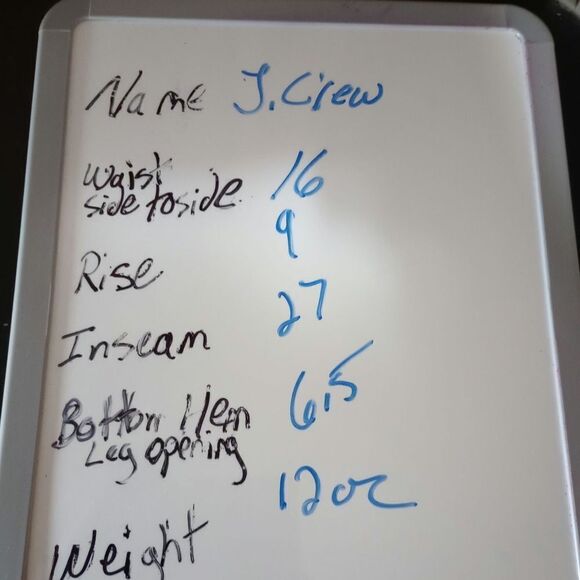 Name J. Crew
Waist
side to side 16
9
Rise
Inseam 27
Bottom Hem 6.5
Leg opening
12oz
Weight